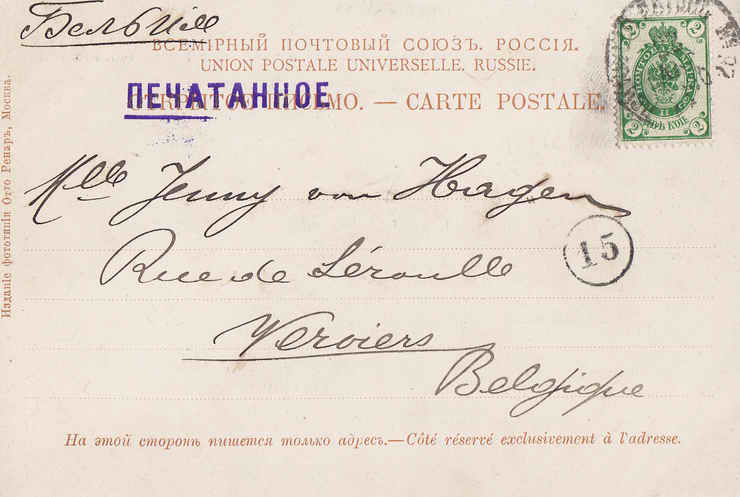 Бельгія
ВСЕМІРНЫЙ ПОЧТОВЫЙ СОЮЗЪ. РОССІЯ.
UNION POSTALE UNIVERSELLE. RUSSIE.
ПЕЧАТАННОЕ
ОТКРЫТОЕ ПИСЬМО. — CARTE POSTALE.
2 2
2 ДВѢ КОП. 2
Mlle Jenny von Hagen
15
Rue de Séroulle
Verviers
Belgique
На этой сторонѣ пишется только адресъ.—Côté réservé exclusivement à l'adresse.
Изданіе фототипіи Отто Ренаръ, Москва.